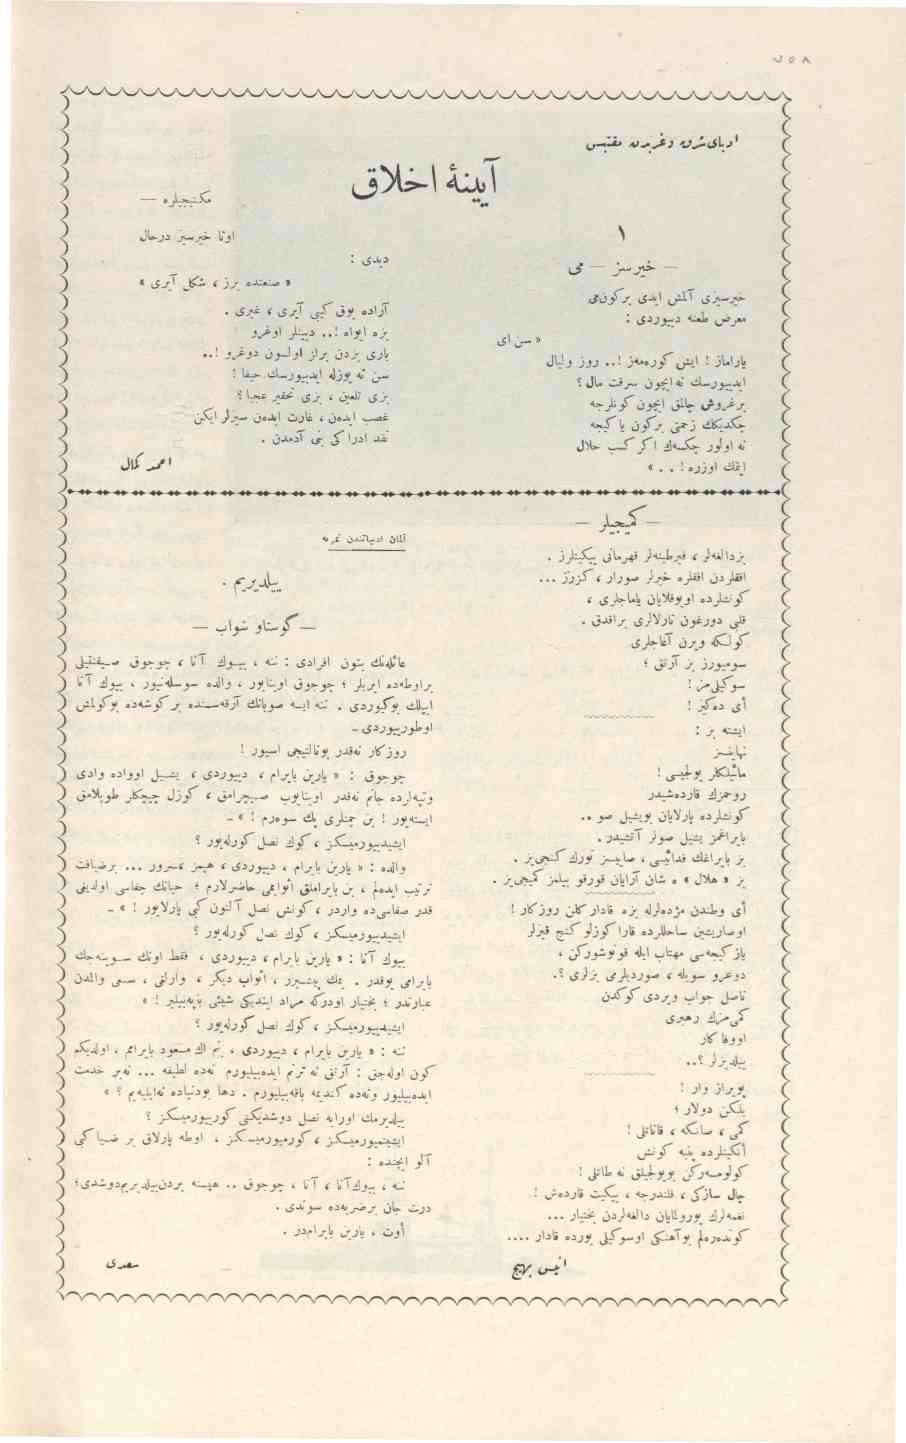 ٣٥٨
ادبای شرق و غربدن مقتبس
آیینهٔ اخلاق
١
— خیرسز — می
خیرسزی آلمش ایدی برکون‌می
معرض طعنه دیبوردی :
« سن ای
یاراماز ! ایش کوره‌مه‌ز !.. روز ولیال
ایدیبورسك نه ایچون سرقت مال ؟
برغروش چالمق ایچون کونلرجه
چکدیکك زحمتی برکون یا کیجه
نه اولور چکسه‌ك اکر کسب حلال
ایتمك اوزره ! . . »
مکتبجیلره —
اوکا خیرسز درحال
دیدی :
« صنعتده برز ، شکل آیری »
آراده یوق کبی آیری ، غیری .
بزه ایواه !.. دیینلر اوغرو
باری بزدن براز اولسون دوغرو !..
سن نه یوزله ایدیبورسك حیفا !
بزی تلعین ، بزی تحقیر عجبا ؟
غصب ایدەن ، غارت ایدەن سیرلر ایکن
نقد ادراکی بنی آدمدن .
احمد کمال
— کمیجیلر —
بزدالغه‌لر ، فیرطینه‌لر قهرمانی ییکیتلرز .
افقلردن افقلره خبرلر صورار ، کزرز ...
کونشلرده اویوقلایان یاماجلری ،
قلبی دورغون تارلالری براقدق .
کولکه ویرن آغاجلری
سومیورز بز آرتق ؛
سوکیلی‌مز !
أی دەکیز !
ایشته بز :
نهایتسز
مائیلکلر یولجیسی !
روحمزك قارده‌شیدر
کونشلرده پارلایان یوشیل صو ..
بایراغمز یشیل صولر آتشیدر.
بز بایراغك فدائیسی ، صاییسز تورك کنجی‌یز .
بز « هلال » ه شان آرایان قورقو بیلمز کمیجی‌یز .
أی وطندن مژده‌لرله بزه قادار کلن روزکار !
اوصاریشین ساحللرده قارا کوزلو کنج قیزلر
یاز کیجه‌سی مهتاب ایله قونوشورکن ،
دوغرو سویله ، صوردیلرمی بزلری ؟.
ناصل جواب ویردی کوکدن
کمی‌مزك رهبری
اووفا کار
ییلدیزلر ؟..
پویراز وار !
یلکن دولار ؛
کمی ، صانکه ، قاناتلی !
أنکینلرده پنبه کونش
کولومسه‌رکن بویولجیلق نه طاتلی !
چال سازکی ، قلندرجه ، ییکیت قارده‌ش !
نغمه‌لرك یورولمایان دالغه‌لردن بختیار ...
کونده‌ره‌لم بوآهنکی اوسوکیلی یورده قادار ....
انیس بهیج
آلمان ادبیاتندن ثمره
ییلدیریم .
— گوستاو شواب —
عائله‌نك بتون افرادی : ننه ، بیوك آنا ، چوجوق صیقنتیلی
براوطه‌ده ایدیلر ؛ چوجوق اوینایور ، والده سوسله‌نیور ، بیوك آنا
ایپلك بوکیوردی . ننه ایسه صوبانك آرقه‌سنده برکوشه‌ده بوکولمش
اوطوریبوردی ــ
روزکار نه‌قدر بونالتیجی اسیور !
چوجوق : « یارین بایرام ، دیبوردی ، یشیل اوواده وادی
وتپه‌لرده جانم نه‌قدر اوینایوب صیچرامق ، کوزل چیچکلر طوپلامق
ایسته‌یور ! بن چمنلری پك سوه‌رم ! » ــ
ایشیدیبورمیسکز ، کوك نصل کورله‌یور ؟
والده : « یارین بایرام ، دیبوردی ، هیمز مسرور ... برضیافت
ترتیب ایده‌لم ، بن بایراملق اثوابمی حاضرلارم ؛ حیاتك جفاسی اولدیغی
قدر صفاسی‌ده واردر ، کونش نصل آلتون کبی پارلایور ! » ــ
ایشیدیبورمیسکز ، کوك نصل کورله‌یور ؟
بیوك آنا : « یارین بایرام ، دیبوردی ، فقط اونك سوینه‌جك
بایرامی یوقدر . یمك پیشیرر ، اثواب دیکر ، وارلغی ، سعی والمدن
عبارتدر ؛ بختیار اودرکه مراد ایتدیکی شیئی یاپه‌بیلیر ! »
ایشیدیبورمیسکز ، کوك نصل کورله‌یور ؟
ننه : « یارین بایرام ، دیبوردی ، بنم اك مسعود بایرامم ، اولدیکم
کون اوله‌جق : آرتق نه ترنم ایده‌بیلیورم نه‌ده لطیفه ... نه‌بر خدمت
ایده‌بیلیور ونه‌ده کندیمه باقه‌بیلیورم . دها بودنیاده نه‌ایلیه‌یم ؟ »
ییلدیرمك اورایه نصل دوشدیکنی کوریبورمیسکز ؟
ایشیتمیورمیسکز ، کورمیورمیسکز ، اوطه پارلاق بر ضیا کبی
آلو ایچنده :
ننه ، بیوك‌آنا ، آنا ، چوجوق .. هپسنه بردن‌ییلدیریم‌دوشدی؛
درت جان برضربه‌ده سوندی .
أوت ، یارین بایرام‌در .
سعدی